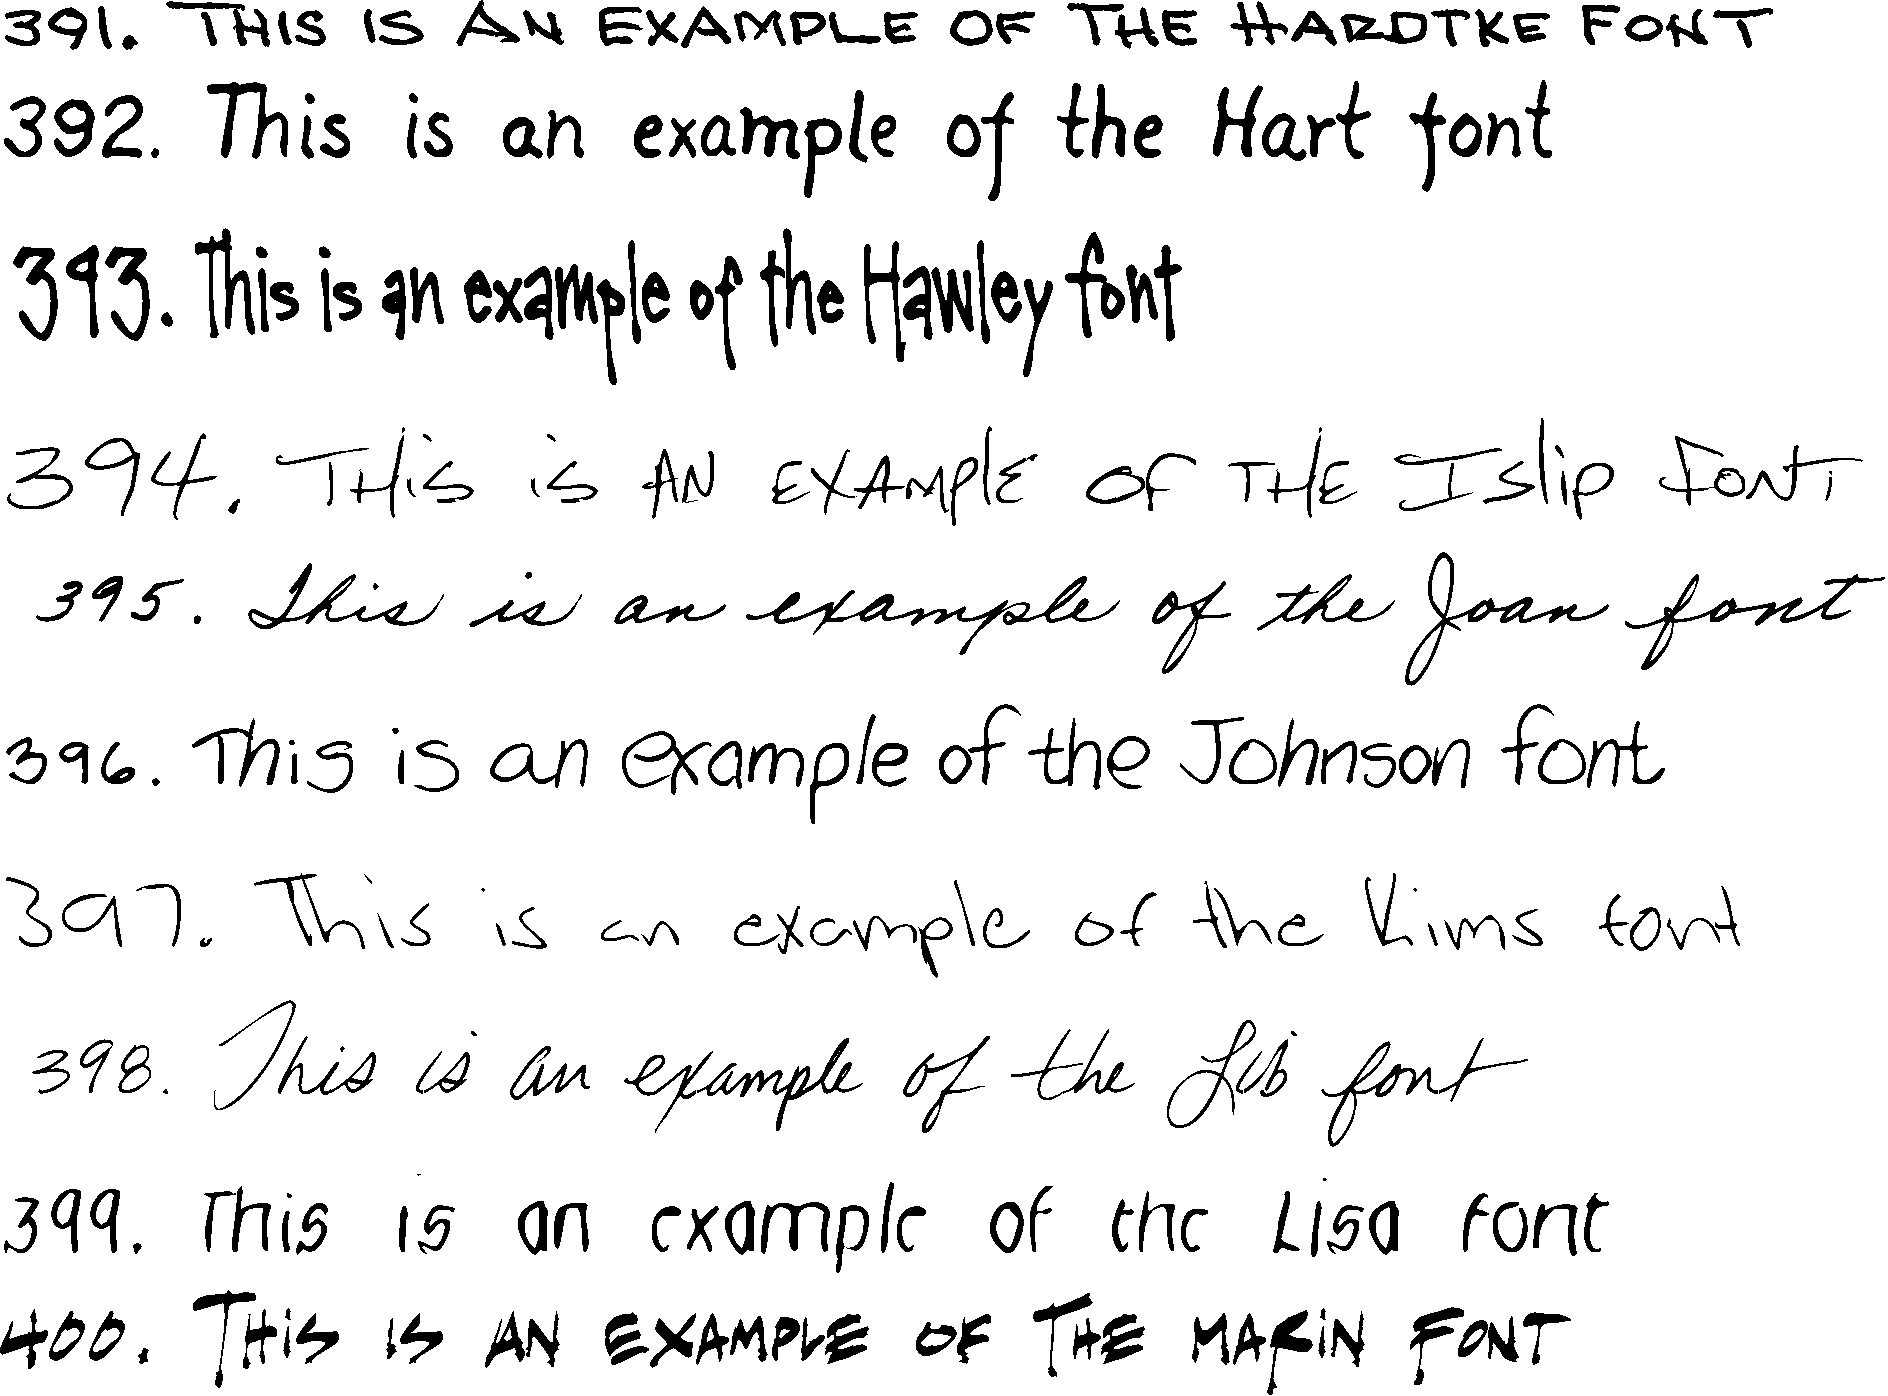 391. THIS IS AN EXAMPLE OF THE HARDTKE FONT
392. This is an example of the Hart font
393. This is an example of the Hawley font
394. THis is AN EXAMPlE OF THE Islip FONT
395. This is an example of the Joan font
396. This is an example of the Johnson font
397. This is an example of the Kims font
398. This is an example of the Lib font
399. This is an example of the Lisa font
400. THiS iS AN EXAMPLE OF THE MARiN FONT